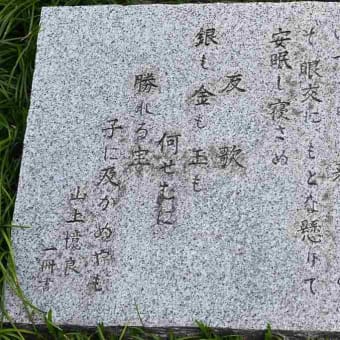 そ眼交にもとな懸りて
安眠し寝さぬ
反歌
銀も金も玉も
何せむに
勝れる宝
子に及かめやも
山上憶良